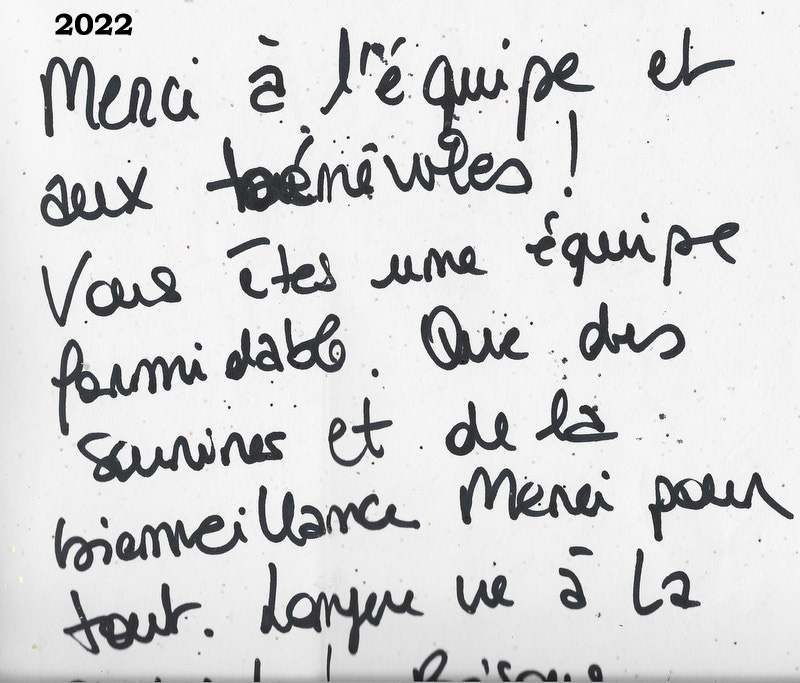 2022
Merci à l'équipe et
aux bénévoles !
Vous êtes une équipe
formidable. Que des
sourires et de la
bienveillance Merci pour
tout. Longue vie à la